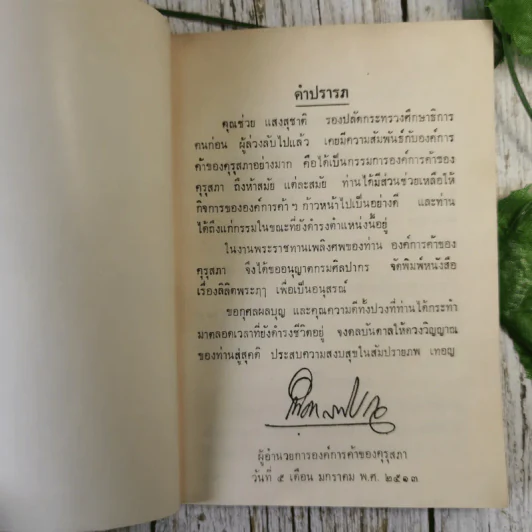 คำปรารภ
คุณช่วย แสงสุชาติ รองปลัดกระทรวงศึกษาธิการ
คนก่อน ผู้ล่วงลับไปแล้ว เคยมีความสัมพันธ์กับองค์การ
ค้าของคุรุสภาอย่างมาก คือได้เป็นกรรมการองค์การค้าของ
คุรุสภา ถึงห้าสมัย แต่ละสมัย ท่านได้มีส่วนช่วยเหลือให้
กิจการขององค์การค้า ฯ ก้าวหน้าไปเป็นอย่างดี และท่าน
ได้ถึงแก่กรรมในขณะที่ยังดำรงตำแหน่งนี้อยู่
ในงานพระราชทานเพลิงศพของท่าน องค์การค้าของ
คุรุสภา จึงได้ขออนุญาตกรมศิลปากร จัดพิมพ์หนังสือ
เรื่องลิลิตพระฦๅ เพื่อเป็นอนุสรณ์
ขอกุศลผลบุญ และคุณความดีทั้งปวงที่ท่านได้กระทำ
มาตลอดเวลาที่ยังดำรงชีวิตอยู่ จงดลบันดาลให้ดวงวิญญาณ
ของท่านสู่สุคติ ประสบความสงบสุขในสัมปรายภพ เทอญ
ผู้อำนวยการองค์การค้าของคุรุสภา
วันที่ ๕ เดือน มกราคม พ.ศ. ๒๕๑๓